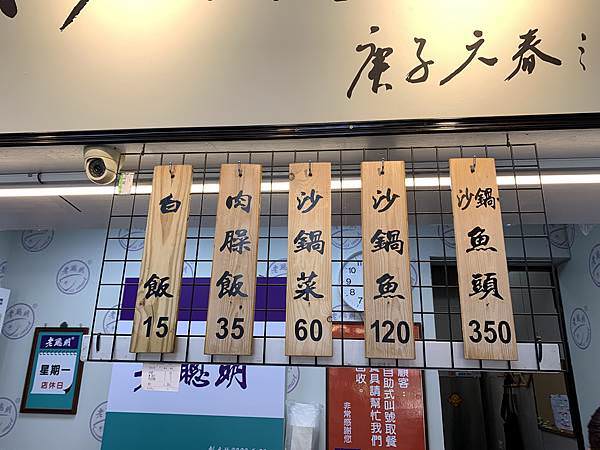 庚子元春
白飯 15
肉臊飯 35
沙鍋菜 60
沙鍋魚 120
沙鍋魚頭 350
老聰明
星期一
店休日
聰明
顧客：
自助式叫號取餐
具請幫忙我們
回收。
非常感謝您